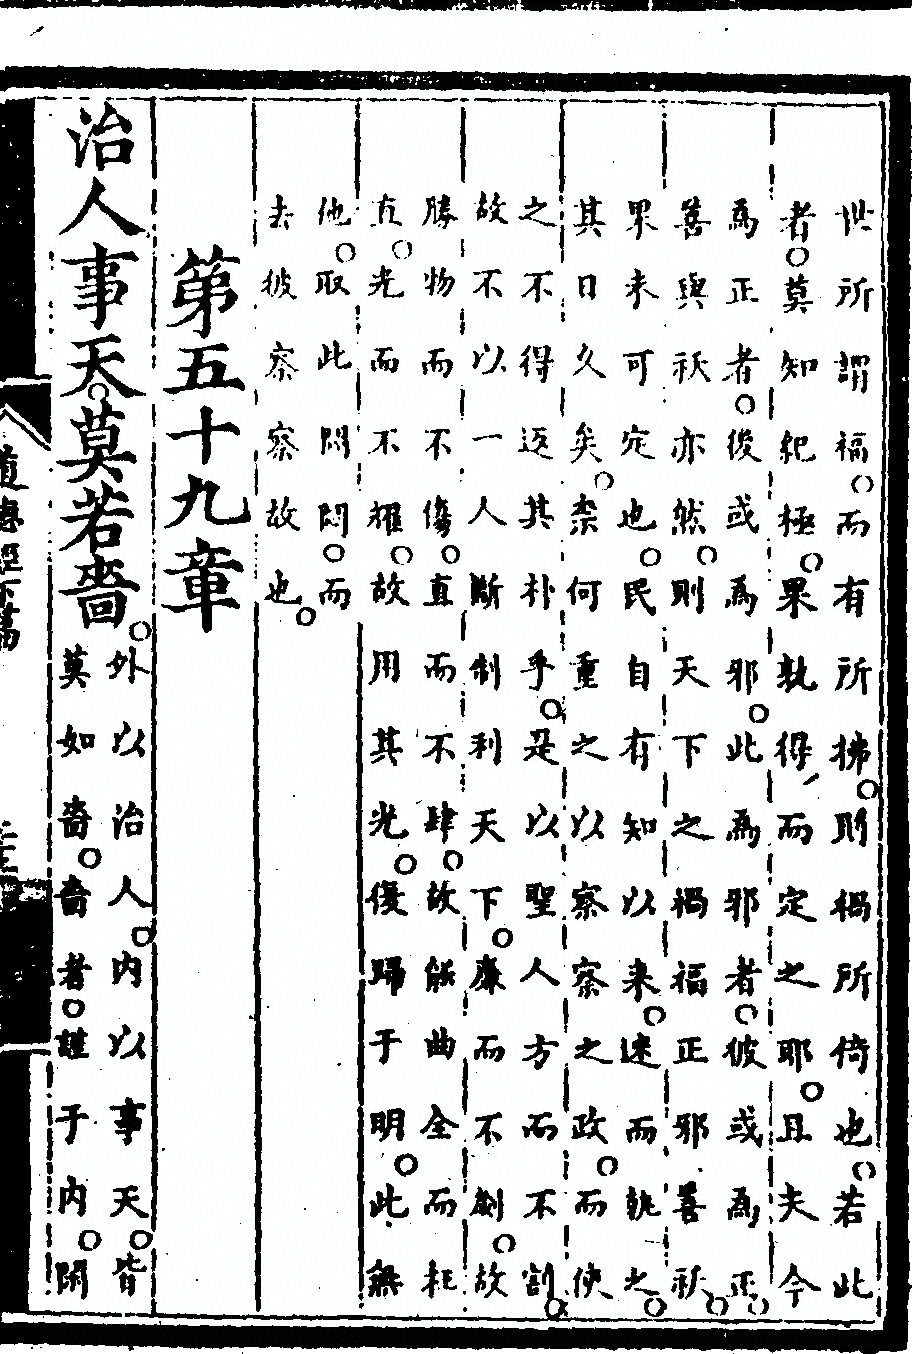 世所謂福○而有所拂○則禍所倚也○若此
者○莫知紀極○果孰得而定之耶○且夫今
為正者○後或為邪○此為邪者○彼或為正○
善與祅亦然○則天下之禍福正邪善祅○
果未可定也○民自有知以来○迷而執之○
其日久矣○柰何重之以察察之政○而使
之不得返其朴乎○是以聖人方而不割○
故不以一人斷制利天下○廉而不劌○故
勝物而不傷○直而不肆○故能曲全而枉
直○光而不耀○故用其光○復歸于明○此無
他○取此悶悶○而
去彼察察故也○
第五十九章
治人事天○莫若嗇○
外以治人○内以事天○皆
莫如嗇○嗇者○謹于内○閑
道德經下篇